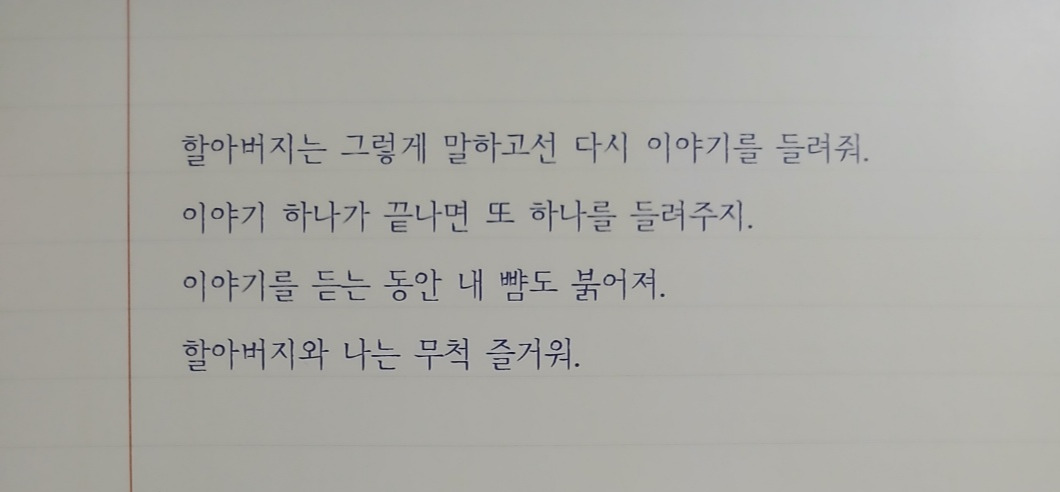 할아버지는 그렇게 말하고선 다시 이야기를 들려줘.
이야기 하나가 끝나면 또 하나를 들려주지.
이야기를 듣는 동안 내 뺨도 붉어져.
할아버지와 나는 무척 즐거워.